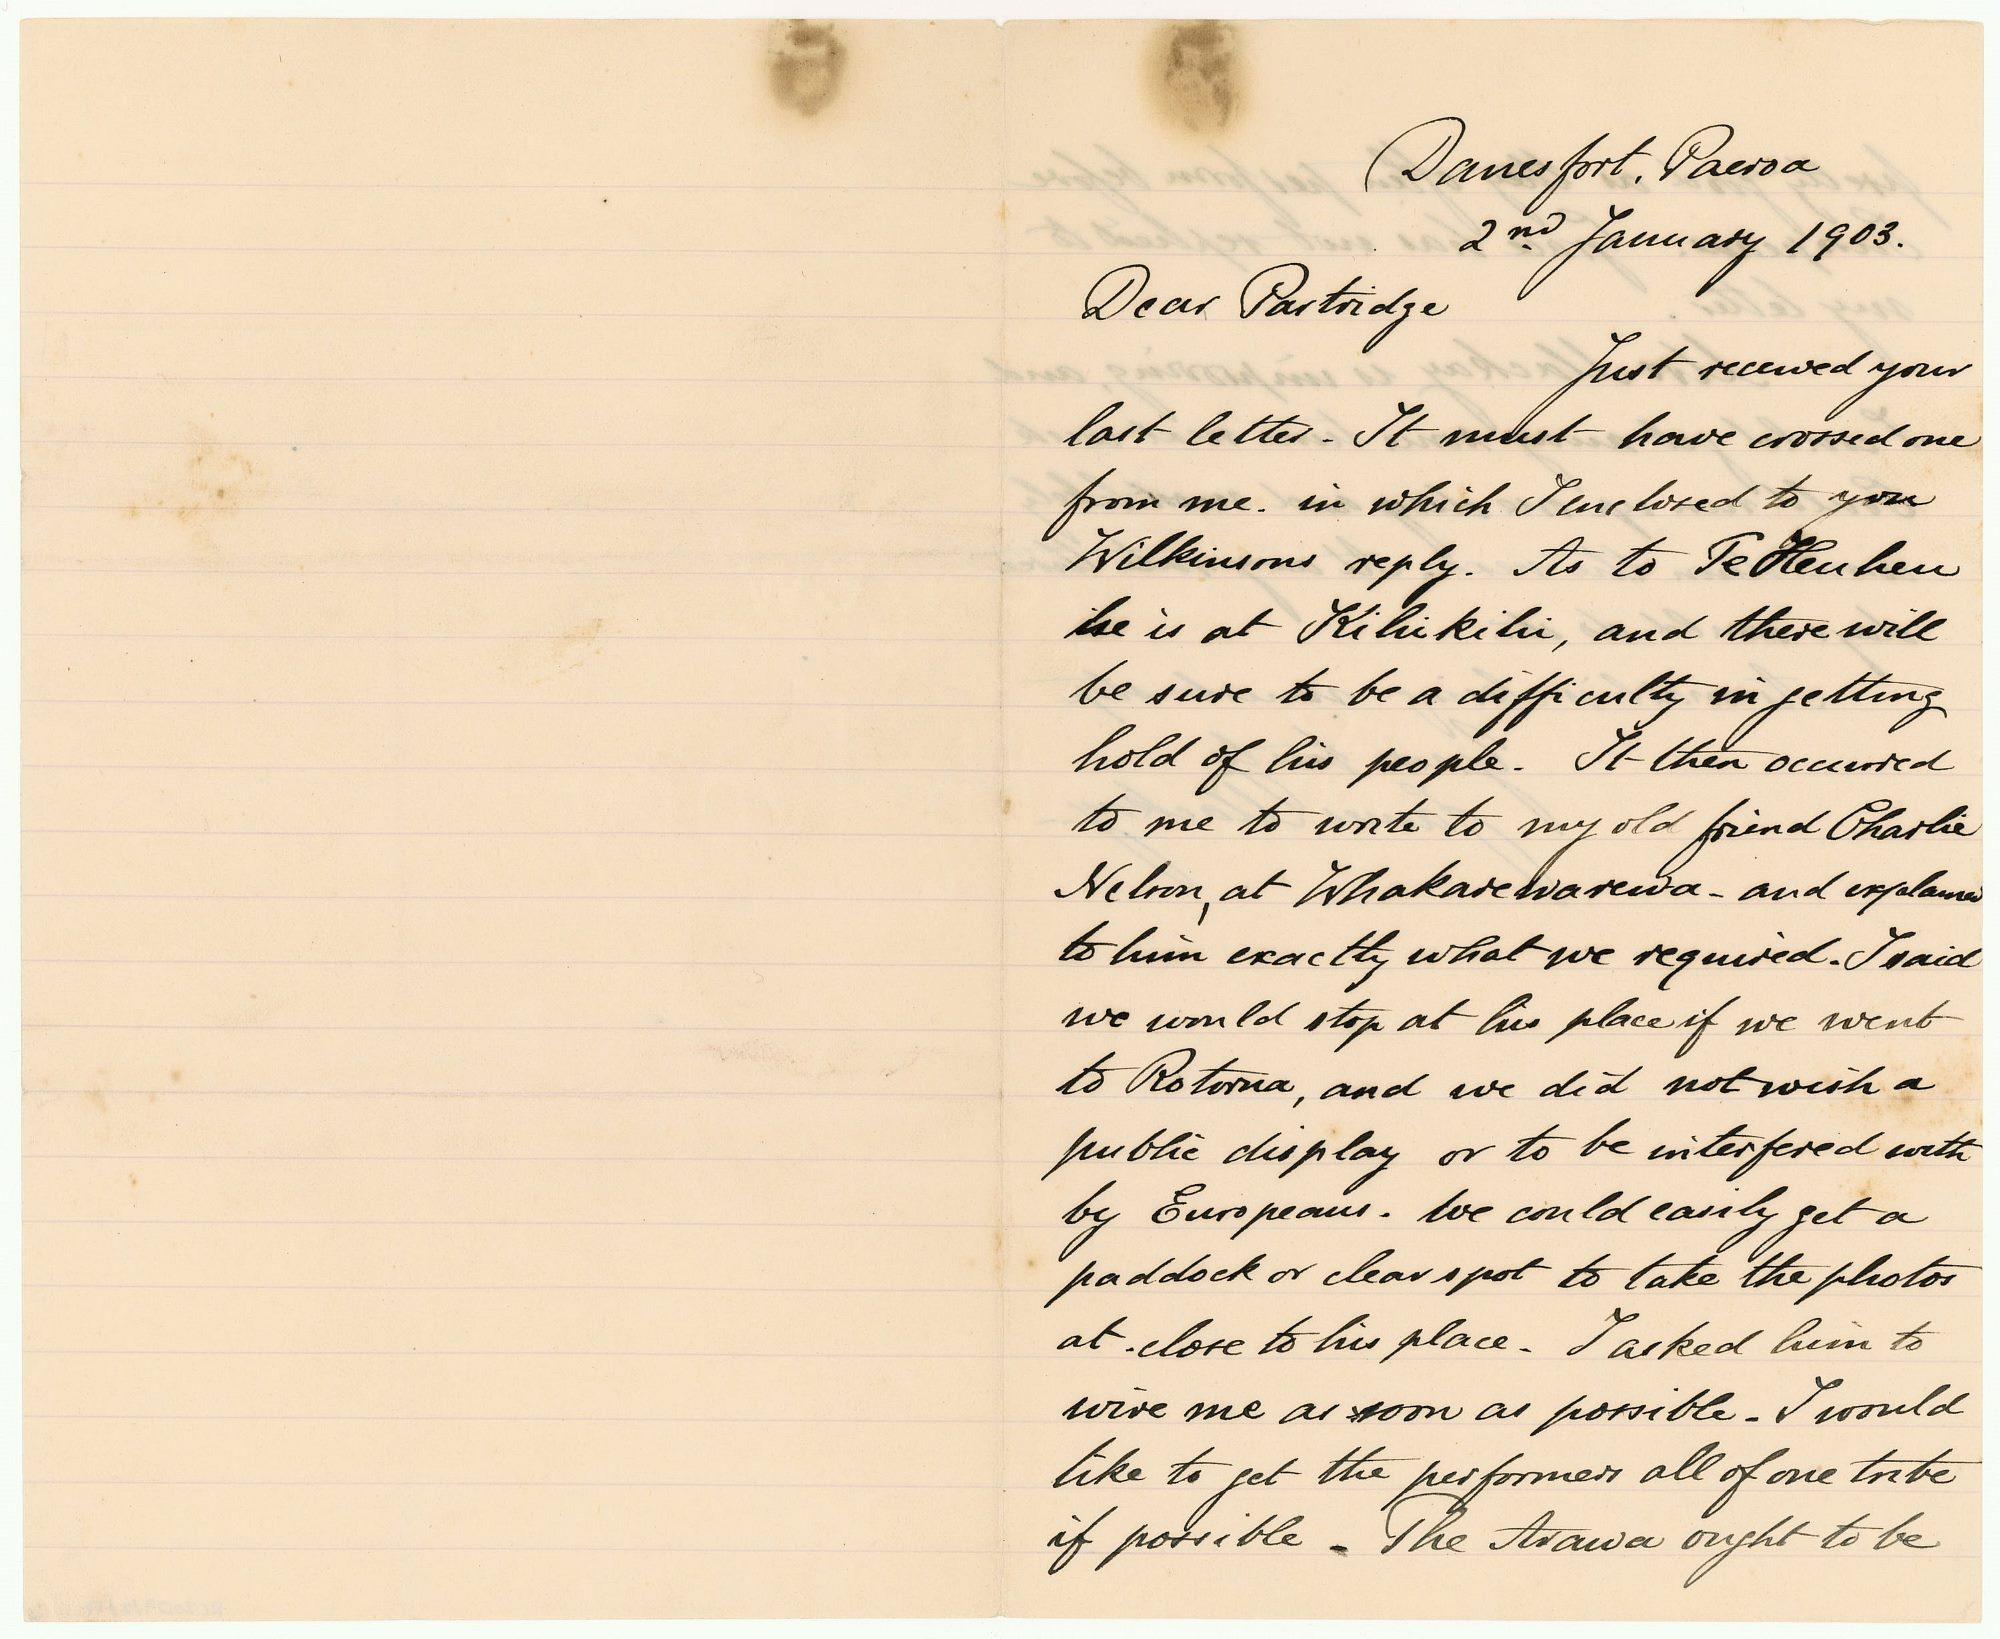 Danesfort, Paeroa
2nd January 1903.
Dear Partridge
Just received your
last letter - It must have crossed one
from me. in which I enclosed to you
Wilkinsons reply. As to Te Heuheu
he is at Kihikihi, and there will
be sure to be a difficulty in getting
hold of his people. It then occurred
to me to write to my old friend Charlie
Nelson, at Whakarewarewa - and explained
to him exactly what we required. I said
we would stop at his place if we went
to Rotorua, and we did not wish a
public display or to be interfered with
by Europeans. We could easily get a
paddock or clear spot to take the photos
at close to his place. I asked him to
wire me as soon as possible - I would
like to get the performers all of one tribe
if possible - The Arawa ought to be